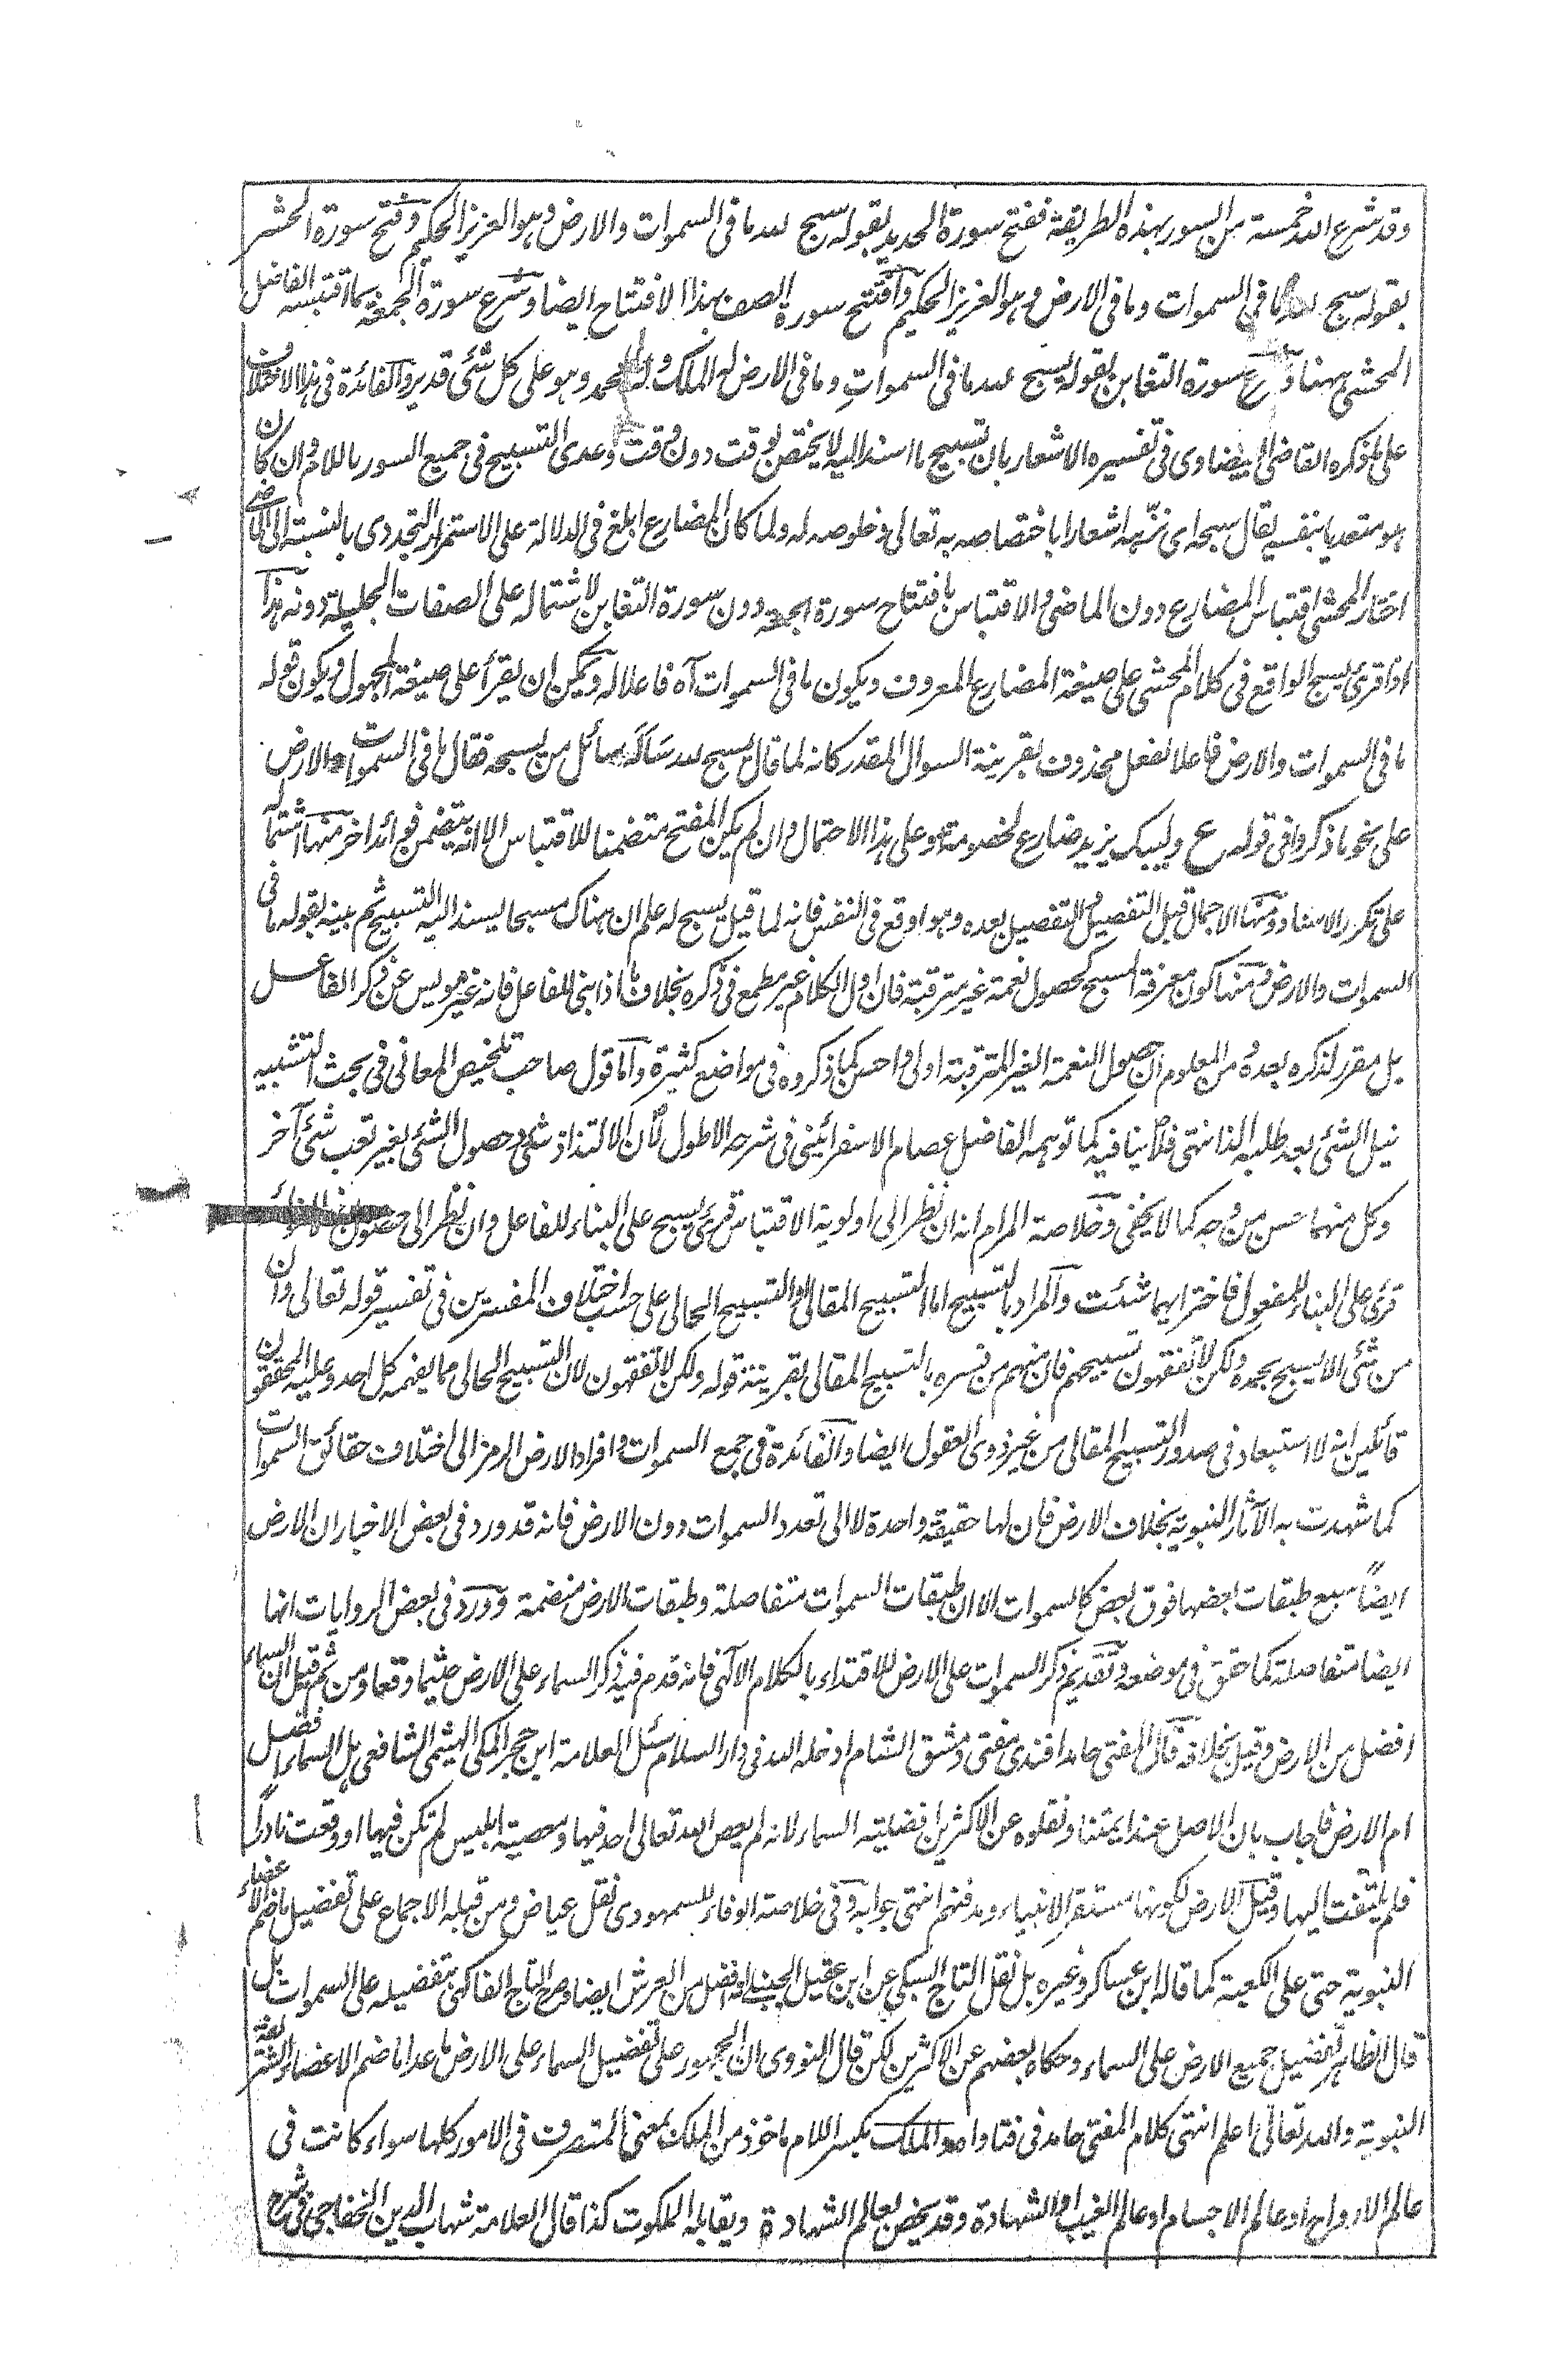 وقد شرع الله خمسة من السور بهذه الطريقة ففتح سورة الحديد بقوله سبح لله ما فى السموات والارض وهو العزيز الحكيم وفتح سورة الحشر
بقوله سبح لله ما فى السموات وما فى الارض وهو العزيز الحكيم وافتتح سورة الصف بهذا الافتتاح ايضا وشرع سورة الجمعة بما اقتبسه الفاضل
المحشى ههنا وشرع سورة التغابن بقوله يسبح لله ما فى السموات وما فى الارض له الملك وله الحمد وهو على كل شئى قدير والفائدة فى هذا الاختلاف
على ما ذكره القاضى البيضاوى فى تفسيره الاشعار بان تسبيح ما اسند اليه لا يختص بوقت دون وقت وعدى التسبيح فى جميع السور باللام وان كان
هو متعديا بنفسه يقال سبحه اى نزّهه اشعارا باختصاصه به تعالى وخلوصه له ولما كان المضارع ابلغ فى الدلالة على الاستمرار التجددى بالنسبة الى الماضى
اختار المحشى اقتباس المضارع دون الماضى والاقتباس بافتتاح سورة الجمعة دون سورة التغابن لاشتماله على الصفات الجليلة دونه هذا
اذا قرئ يسبح الواقع فى كلام المحشى على صيغة المضارع المعروف ويكون ما فى السموات آه فاعلا له ويمكن ان يقرأ على صيغة المجهول ويكون قوله
ما فى السموات والارض فاعلا لفعل محذوف بقرينة السوال المقدر كانه لما قال يسبح لله سَألَه سائل من يسبحه فقال ما فى السموات والارض
على نحو ما ذكروا فى قوله ع وليبك يزيد ضارع لخصومة هو وعلى هذا الاحتمال وان لم يكن المفتح متضمنا للاقتباس الا انه يتضمن فوائد اخر منها اشتماله
على تكرر الاسناد ومنها الاجمال قبل التفصيل والتفصيل بعده وهو اوقع فى النفس فانه لما قيل يسبح له علم ان هناك مسبحا يسند اليه التسبيح ثم بينه بقوله ما فى
السموات والارض ومنها كون معرفة المسبح كحصول نعمة غير مترقبة فان اول الكلام غير مطمع فى ذكره بخلاف ما اذا بنى للفاعل فانه غير مويس عن ذكر الفاعل
بل مقرر لذكره بعده ومن المعلوم ان حصول النعمة الغير المترقبة اولى واحسن كما ذكروه فى مواضع كثيرة واما قول صاحب تلخيص المعانى فى بحث التشبيه
نيل الشئى بعد طلبه الذ انتهى فلا ينافيه كما توهمه الفاضل عصام الاسفرائينى فى شرحه الاطول لان الالتذاذ شئى وحصول الشئى بغير تعب شئى آخر
وكل منهما حسن من وجه كما لا يخفى وخلاصة المرام انه ان نظر الى اولوية الاقتباس قرئ يسبح على البناء للفاعل وان نظر الى حصول
قرئ على البناء للمفعول فاختر ايهما شئت والمراد بالتسبيح اما التسبيح المقالى او التسبيح الحالى على حسب اختلاف المفسرين فى تفسير قوله تعالى وان
من شئى الا يسبح بحمده ولكن لا تفقهون تسبيحهم فان منهم من فسره بالتسبيح المقالى بقرينة قوله ولكن لا تفقهون لان التسبيح الحالى مما يفهمه كل احد وعليه المحققون
قائلين انه لا استبعاد فى صدور التسبيح المقالى من غير ذوى العقول ايضا والفائدة فى جمع السموات وافراد الارض الرمز الى اختلاف حقائق السموات
كما شهدت به الآثار النبوية بخلاف الارض فان لها حقيقة واحدة لا الى تعدد السموات دون الارض فانه قد ورد فى بعض الاخبار ان الارض
ايضاً سبع طبقات بعضها فوق بعض كالسموات الا ان طبقات السموات متفاصلة وطبقات الارض منضمة وورد فى بعض الروايات انها
ايضا متفاصلة كما حقق فى موضعه وتقديم ذكر السموات على الارض للاقتداء بالكلام الآلهى فانه قدم فيه ذكر السماء على الارض حيثما وقعا ومن ثم قيل ان السماء
افضل من الارض وقيل بخلافه قال المفتى حامد افندى مفتى دمشق الشام ادخله الله فى دار السلام سئل العلامة ابن حجر المكى الهيثمى الشافعى هل السماء افضل
ام الارض فاجاب بان الاصل عند ائمتنا ونقلوه عن الاكثرين افضلية السماء لانه لم يعص الله تعالى احد فيها ومعصية ابليس لم تكن فيها او وقعت نادراً
فلم يلتفت اليها وقيل الارض لكونها مستقر الانبياء ومدفنهم انتهى جوابه وفى خلاصة الوفاء للسمهودى نقل عياض ومن قبله الاجماع على تفضيل ما ضم الاعضاء
النبوية حتى على الكعبة كما قاله ابن عساكر وغيره بل نقل التاج السبكى عن ابن عقيل الحنبلى انه افضل من العرش ايضا وصرح التاج الفاكهى بتفضيله على السموات بل
قال الظاهر تفضيل جميع الارض على السماء وحكاه بعضهم عن الاكثرين لكن قال النووى ان الجمهور على تفضيل السماء على الارض ما عدا ما ضم الاعضاء الشريفة
النبوية والله تعالى اعلم انتهى كلام المفتى حامد فى فتاواه والملك بكسر اللام ماخوذ من الملك بمعنى المتصرف فى الامور كلها سواء كانت فى
عالم الارواح او عالم الاجسام او عالم الغيب او الشهادة وقد يخص بعالم الشهادة ويقابله الملكوت كذا قال العلامة شهاب الدين الخفاجى فى شرح